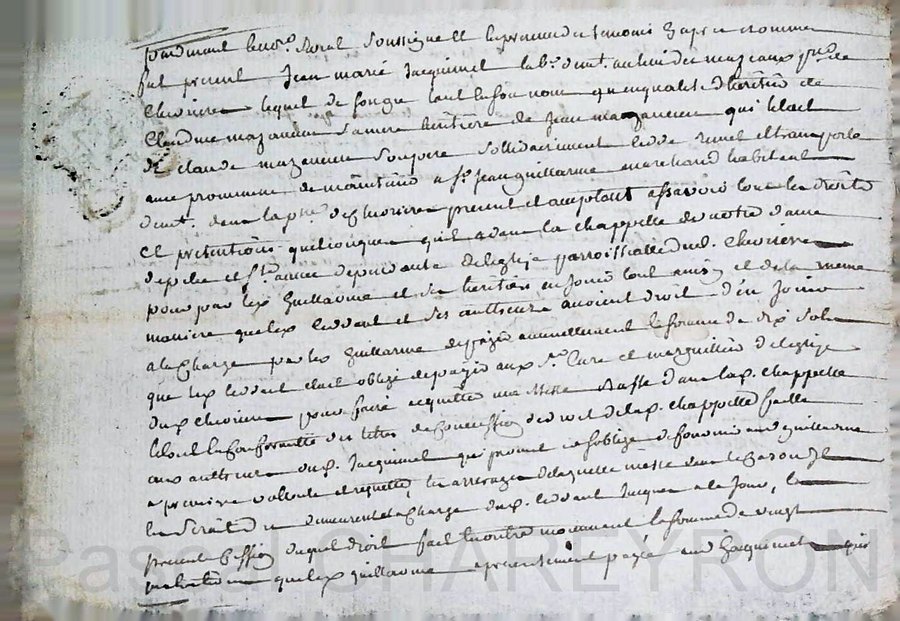 pardevant le no.re Royal soussigné et en presence des temoins cy apres nommes
fut present Jean marie Jacquimet lab.r d'ent. au lieu de mazeaux p.sse de
Chevrieres lequel de son gré tant en son nom qu'en qualité d'heritier de
Claudine mazancieu sa mere heritiere de Jean mazancieu qui l'etoit
de claude mazancieu son pere sollidairement cedde remet et transporte
avec promesse de maintenir a s.r Jean guillarme marchand habitant
d'ent. dans la p.sse de Chevrieres present et acceptant assavoir tous les droits
et pretentions quelconques qu'il a dans la chappelle de notre dame
de pitie et S.te anne dependante de l'eglise parroissialle dud. Chevrieres
pour par led. Guillarme et ses heritiers en jouir tout ainsy et de la meme
maniere que led. ceddant et ses autheurs avoient droit d'en jouir
a la Charge par led. Guillarme de payer annuellement la somme de dix sols
que led. ceddant etait obligé de payer aux s.rs Curé et marguilliers de l'eglise
dud. Chevrieres pour faire acquitter une Messe Basse dans lad. chappelle
le tout en conformité des titres de concession du droit de lad. chappelle faitte
aux autheurs dud. Jacquimet qui promet et s'oblige de fournir aud. guillarme
a premiere vollonté et requette, les arrerages de laquelle messe dans le cas ou il
en seroit du demeurent a la Charge dud. ceddant jusques a ce jour, la
presente Cession dudit droit fait en outre moyennant la somme de vingt
quatre livres que led. guillarme a presentement payé aud. Jacquimet qui
Pascal CHAREYRON